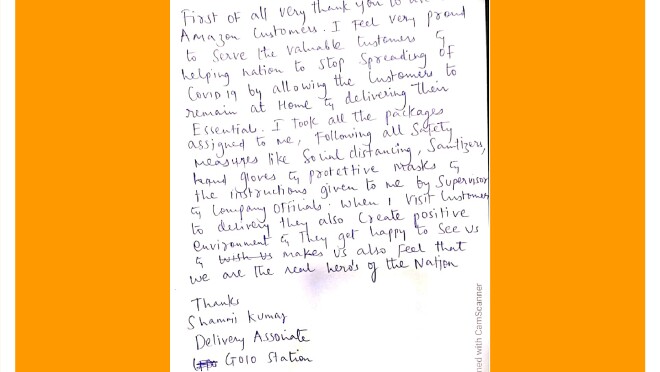 First of all very thank you to
Amazon Customers. I Feel very proud
to Serve the valuable Customers &
helping nation to stop Spreading of
Covid 19 by allowing the Customers to
remain at Home & delivering their
Essential. I Took all the packages
assigned to me, Following all Safety
measures like Soicial distancing, Sanitizers,
hand gloves & protettive masks &
the instructions given to me by Supervisor
& Company Officials. When I Visit Customer
to delivery they also Create positive
environment & They get happy to See us
& wish us makes us also Feel that
we are the real heros of the Nation
Thanks
Shammi Kumar
Delivery Assosiate
GO10 Station
ned with CamScanner